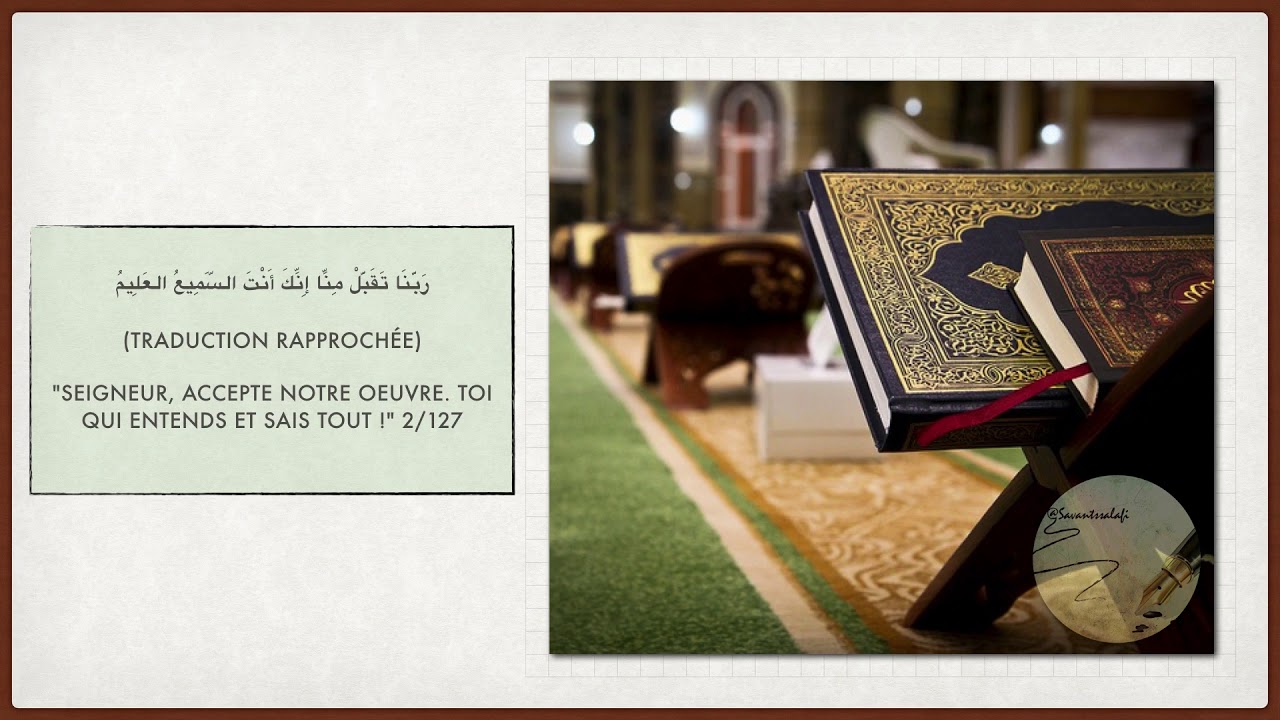 رَبَّنَا تَقَبَّلْ مِنَّا إِنَّكَ أَنْتَ السَّمِيعُ العَلِيمُ
(TRADUCTION RAPPROCHÉE)
"SEIGNEUR, ACCEPTE NOTRE OEUVRE. TOI
QUI ENTENDS ET SAIS TOUT !" 2/127
@Savantssalafi